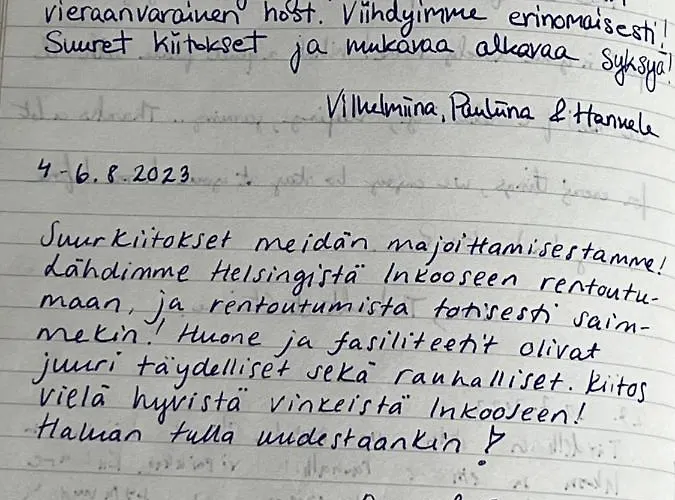 vieraanvarainen host. Viihdyimme erinomaisesti!
Suuret kiitokset ja mukavaa alkavaa syksyä!
Vilhelmiina, Pauliina & Hannele
4-6.8.2023
Suurkiitokset meidän majoittamisestamme!
Lähdimme Helsingistä Inkooseen rentoutu-
maan, ja rentoutumista totisesti saim-
mekin! Huone ja fasiliteetit olivat
juuri täydelliset sekä rauhalliset. Kiitos
vielä hyvistä vinkeistä Inkooseen!
Haluan tulla uudestaankin!